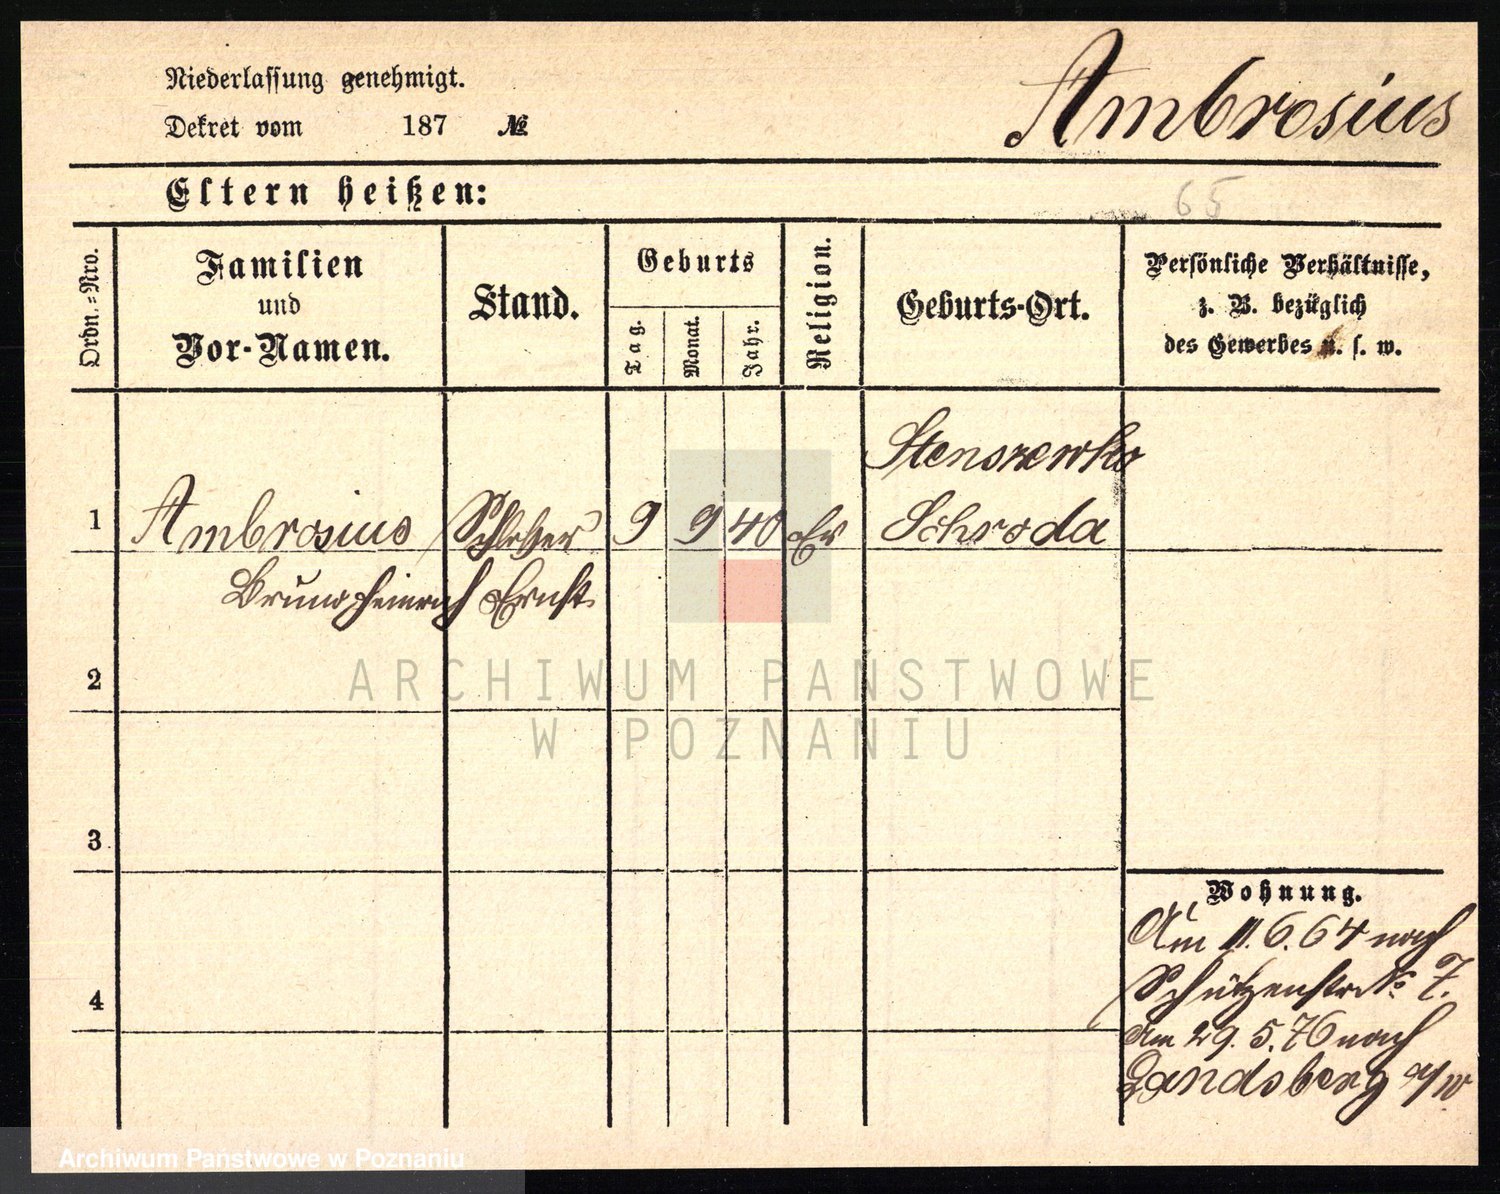 Niederlassung genehmigt.
Dekret vom 187 №
Ambrosius
Eltern heißen:
65
Ordn.-Nro.
Familien
und
Vor-Namen.
Stand.
Geburts
Tag.
Monat.
Jahr.
Religion.
Geburts-Ort.
Persönliche Verhältnisse,
z. B. bezüglich
des Gewerbes u. s. w.
Stenszewko
1 Ambrosius Schlosser 9 9 40 Ev Schroda
Bruno Heinrich Ernst
2
3
4
Wohnung.
Am 11. 6. 64 nach
Schützenstr No 7.
Am 29. 5. 76 nach
Landsberg a/W
ARCHIWUM PAŃSTWOWE
W POZNANIU
Archiwum Państwowe w Poznaniu